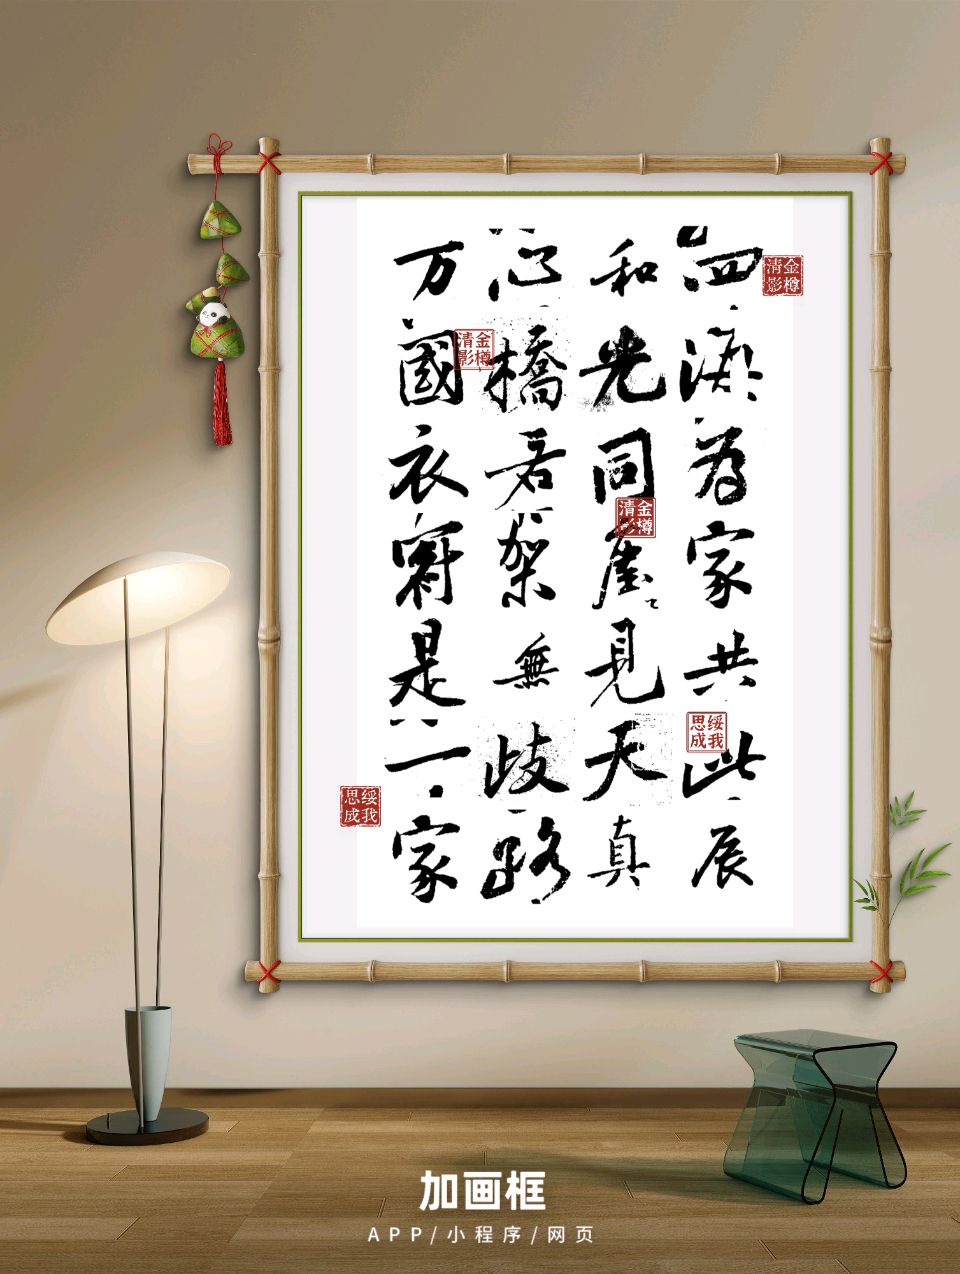 四海為家共此辰
和光同塵見天真
心橋若架無歧路
万國衣冠是一家
金樽清影
金樽清影
金樽清影
绥我思成
绥我思成
加画框
APP/小程序/网页